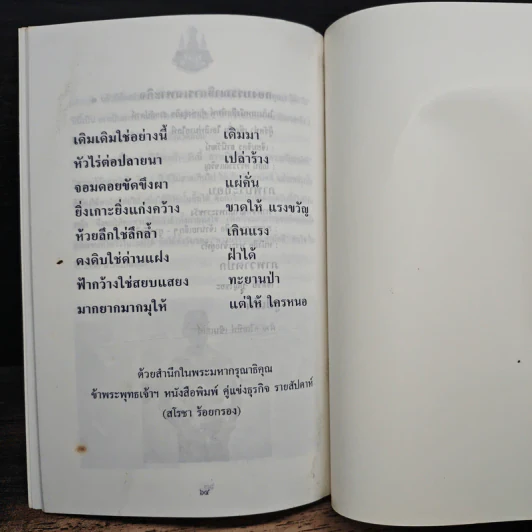 เดิมเดิมใช่อย่างนี้ เดิมมา
หัวไร่ต่อปลายนา เปล่าร้าง
จอมดอยขัดขึงผา แผ่คั่น
ยิ่งเกาะยิ่งแก่งคว้าง ขวดให้ แรงขวัญ
ห้วยลึกใช่ลึกล้ำ เกินแรง
ดงดิบใช่ด่านแฝง ฝ่าได้
ฟ้ากว้างใช่สยบแสยง ทะยานป่า
มากยากมากมุให้ แต่ให้ ใครหนอ
ด้วยสำนึกในพระมหากรุณาธิคุณ
ข้าพระพุทธเจ้าฯ หนังสือพิมพ์ คู่แข่งธุรกิจ รายสัปดาห์
(สโรชา ร้อยกรอง)